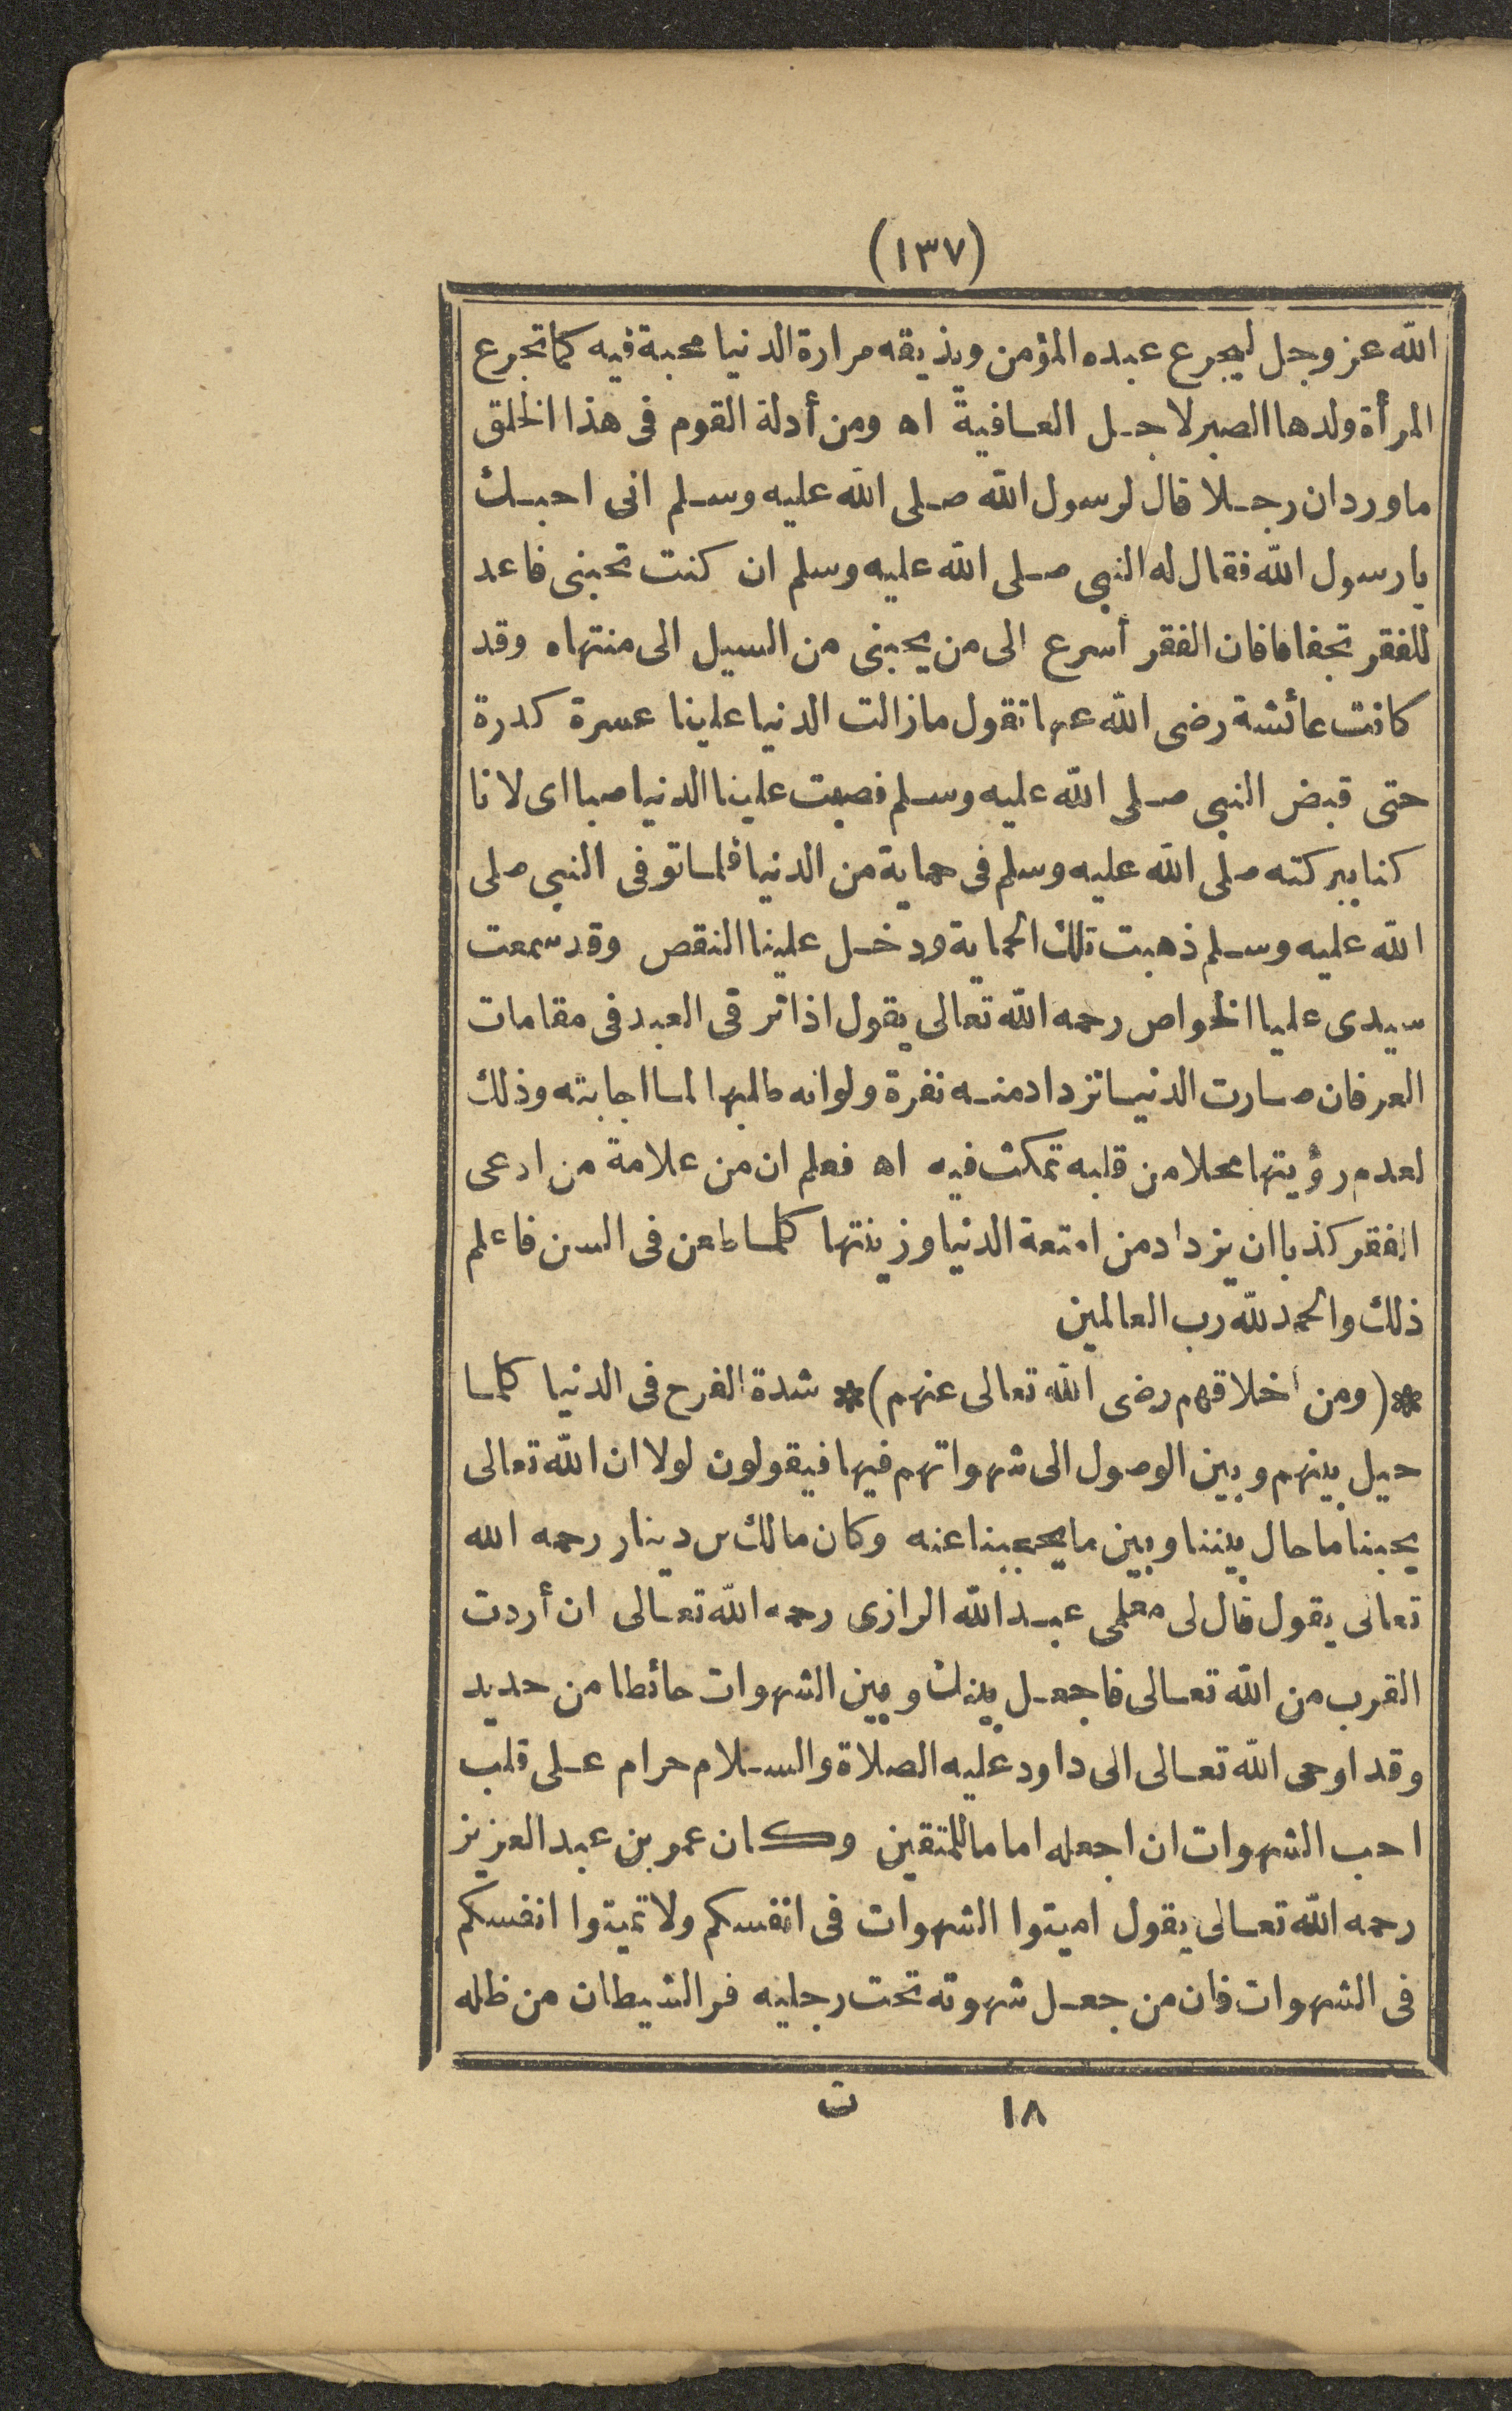 (١٣٧)
الله عز وجل ليجرع عبده المؤمن ويذيقه مرارة الدنيا محبة فيه كما تجرع
المرأة ولدها الصبر لاجل العافية اه ومن أدلة القوم فى هذا الخلق
ما ورد ان رجلا قال لرسول الله صلى الله عليه وسلم انى احبك
يا رسول الله فقال له النبى صلى الله عليه وسلم ان كنت تحبنى فاعد
للفقر تجفافا فان الفقر أسرع الى من يحبنى من السيل الى منتهاه وقد
كانت عائشة رضى الله عنها تقول ما زالت الدنيا علينا عسرة كدرة
حتى قبض النبى صلى الله عليه وسلم فصبت علينا الدنيا صبا اى لانا
كنا ببركته صلى الله عليه وسلم فى حماية من الدنيا فلما توفى النبى صلى
الله عليه وسلم ذهبت تلك الحماية ودخل علينا النقص وقد سمعت
سيدى عليا الخواص رحمه الله تعالى يقول اذا ترقى العبد فى مقامات
العرفان صارت الدنيا تزداد منه نفرة ولو انه طلبها لما اجابته وذلك
لعدم رؤيتها محلا من قلبه تمكث فيه اه فعلم ان من علامة من ادعى
الفقر كذبا ان يزداد من امتعة الدنيا وزينتها كلما طعن فى السن فاعلم
ذلك والحمد لله رب العالمين
*(ومن أخلاقهم رضى الله تعالى عنهم)* شدة الفرح فى الدنيا كلما
حيل بينهم وبين الوصول الى شهواتهم فيها فيقولون لولا ان الله تعالى
يحبنا ما حال بيننا وبين ما يحجبنا عنه وكان مالك بن دينار رحمه الله
تعالى يقول قال لى معلمى عبد الله الرازى رحمه الله تعالى ان أردت
القرب من الله تعالى فاجعل بينك وبين الشهوات حائطا من حديد
وقد اوحى الله تعالى الى داود عليه الصلاة والسلام حرام على قلب
احب الشهوات ان اجعله اماما للمتقين وكان عمر بن عبد العزيز
رحمه الله تعالى يقول اميتوا الشهوات فى انفسكم ولا تميتوا انفسكم
فى الشهوات فان من جعل شهوته تحت رجليه فر الشيطان من ظله
١٨ ت